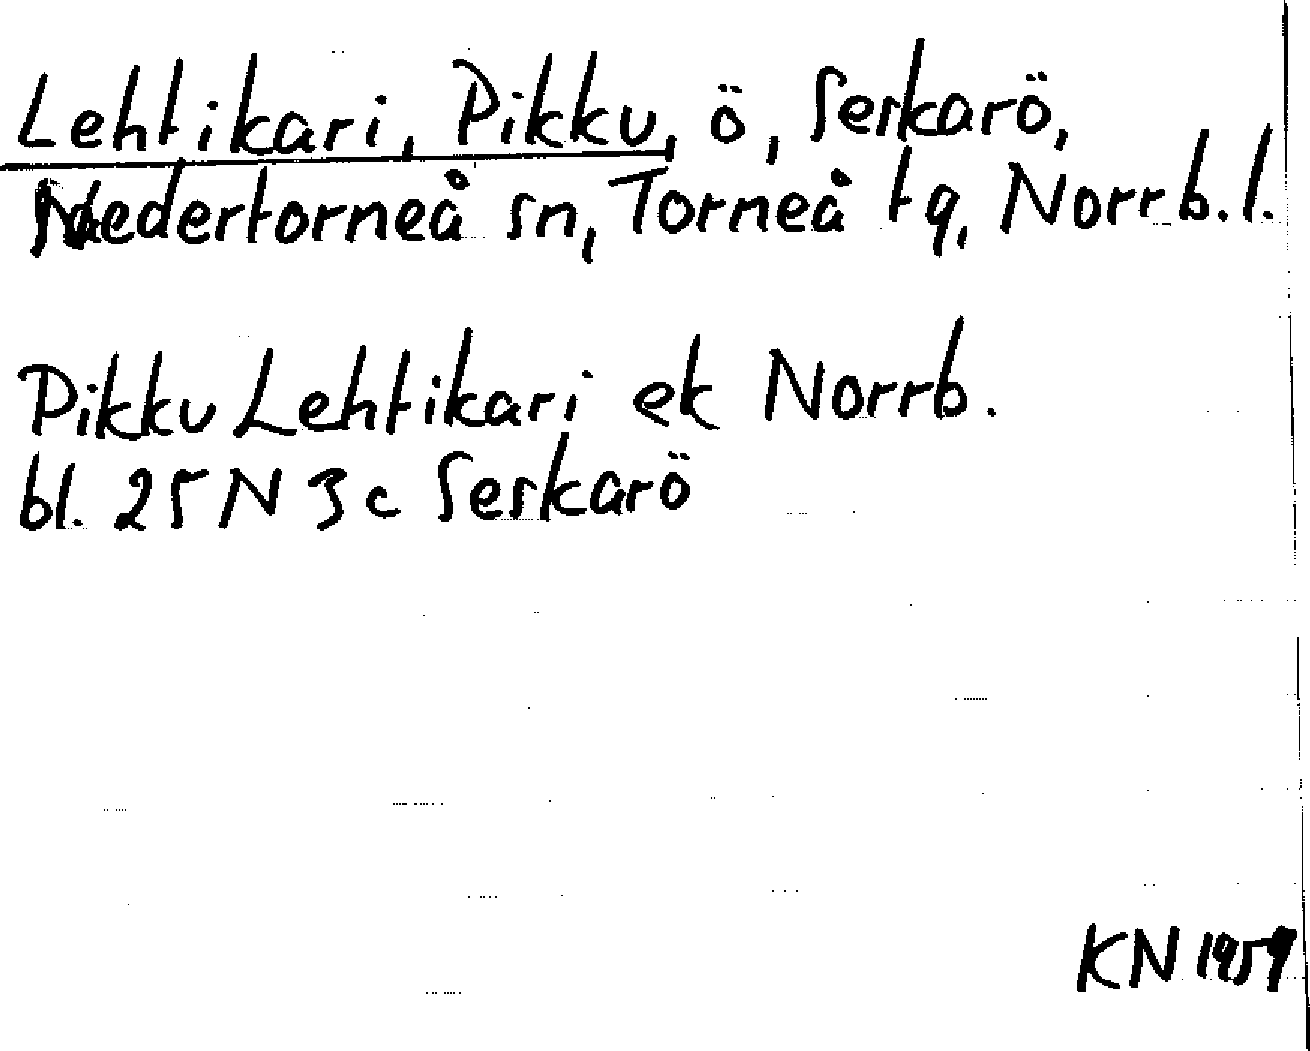 Lehtikari, Pikku, ö, Seskarö,
Nedertorneå sn, Torneå tg, Norrb.l.
Pikku Lehtikari ek Norrb.
bl. 25 N 3 c Seskarö
KN 1959